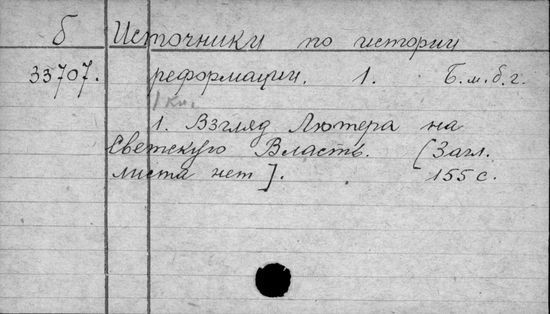 Б Источники по истории
33707. реформации. 1. Б.м.б.г.
1 кн.
1. Взгляд Лютера на
Светскую Власть. [Загл.
листа нет]. 155 с.